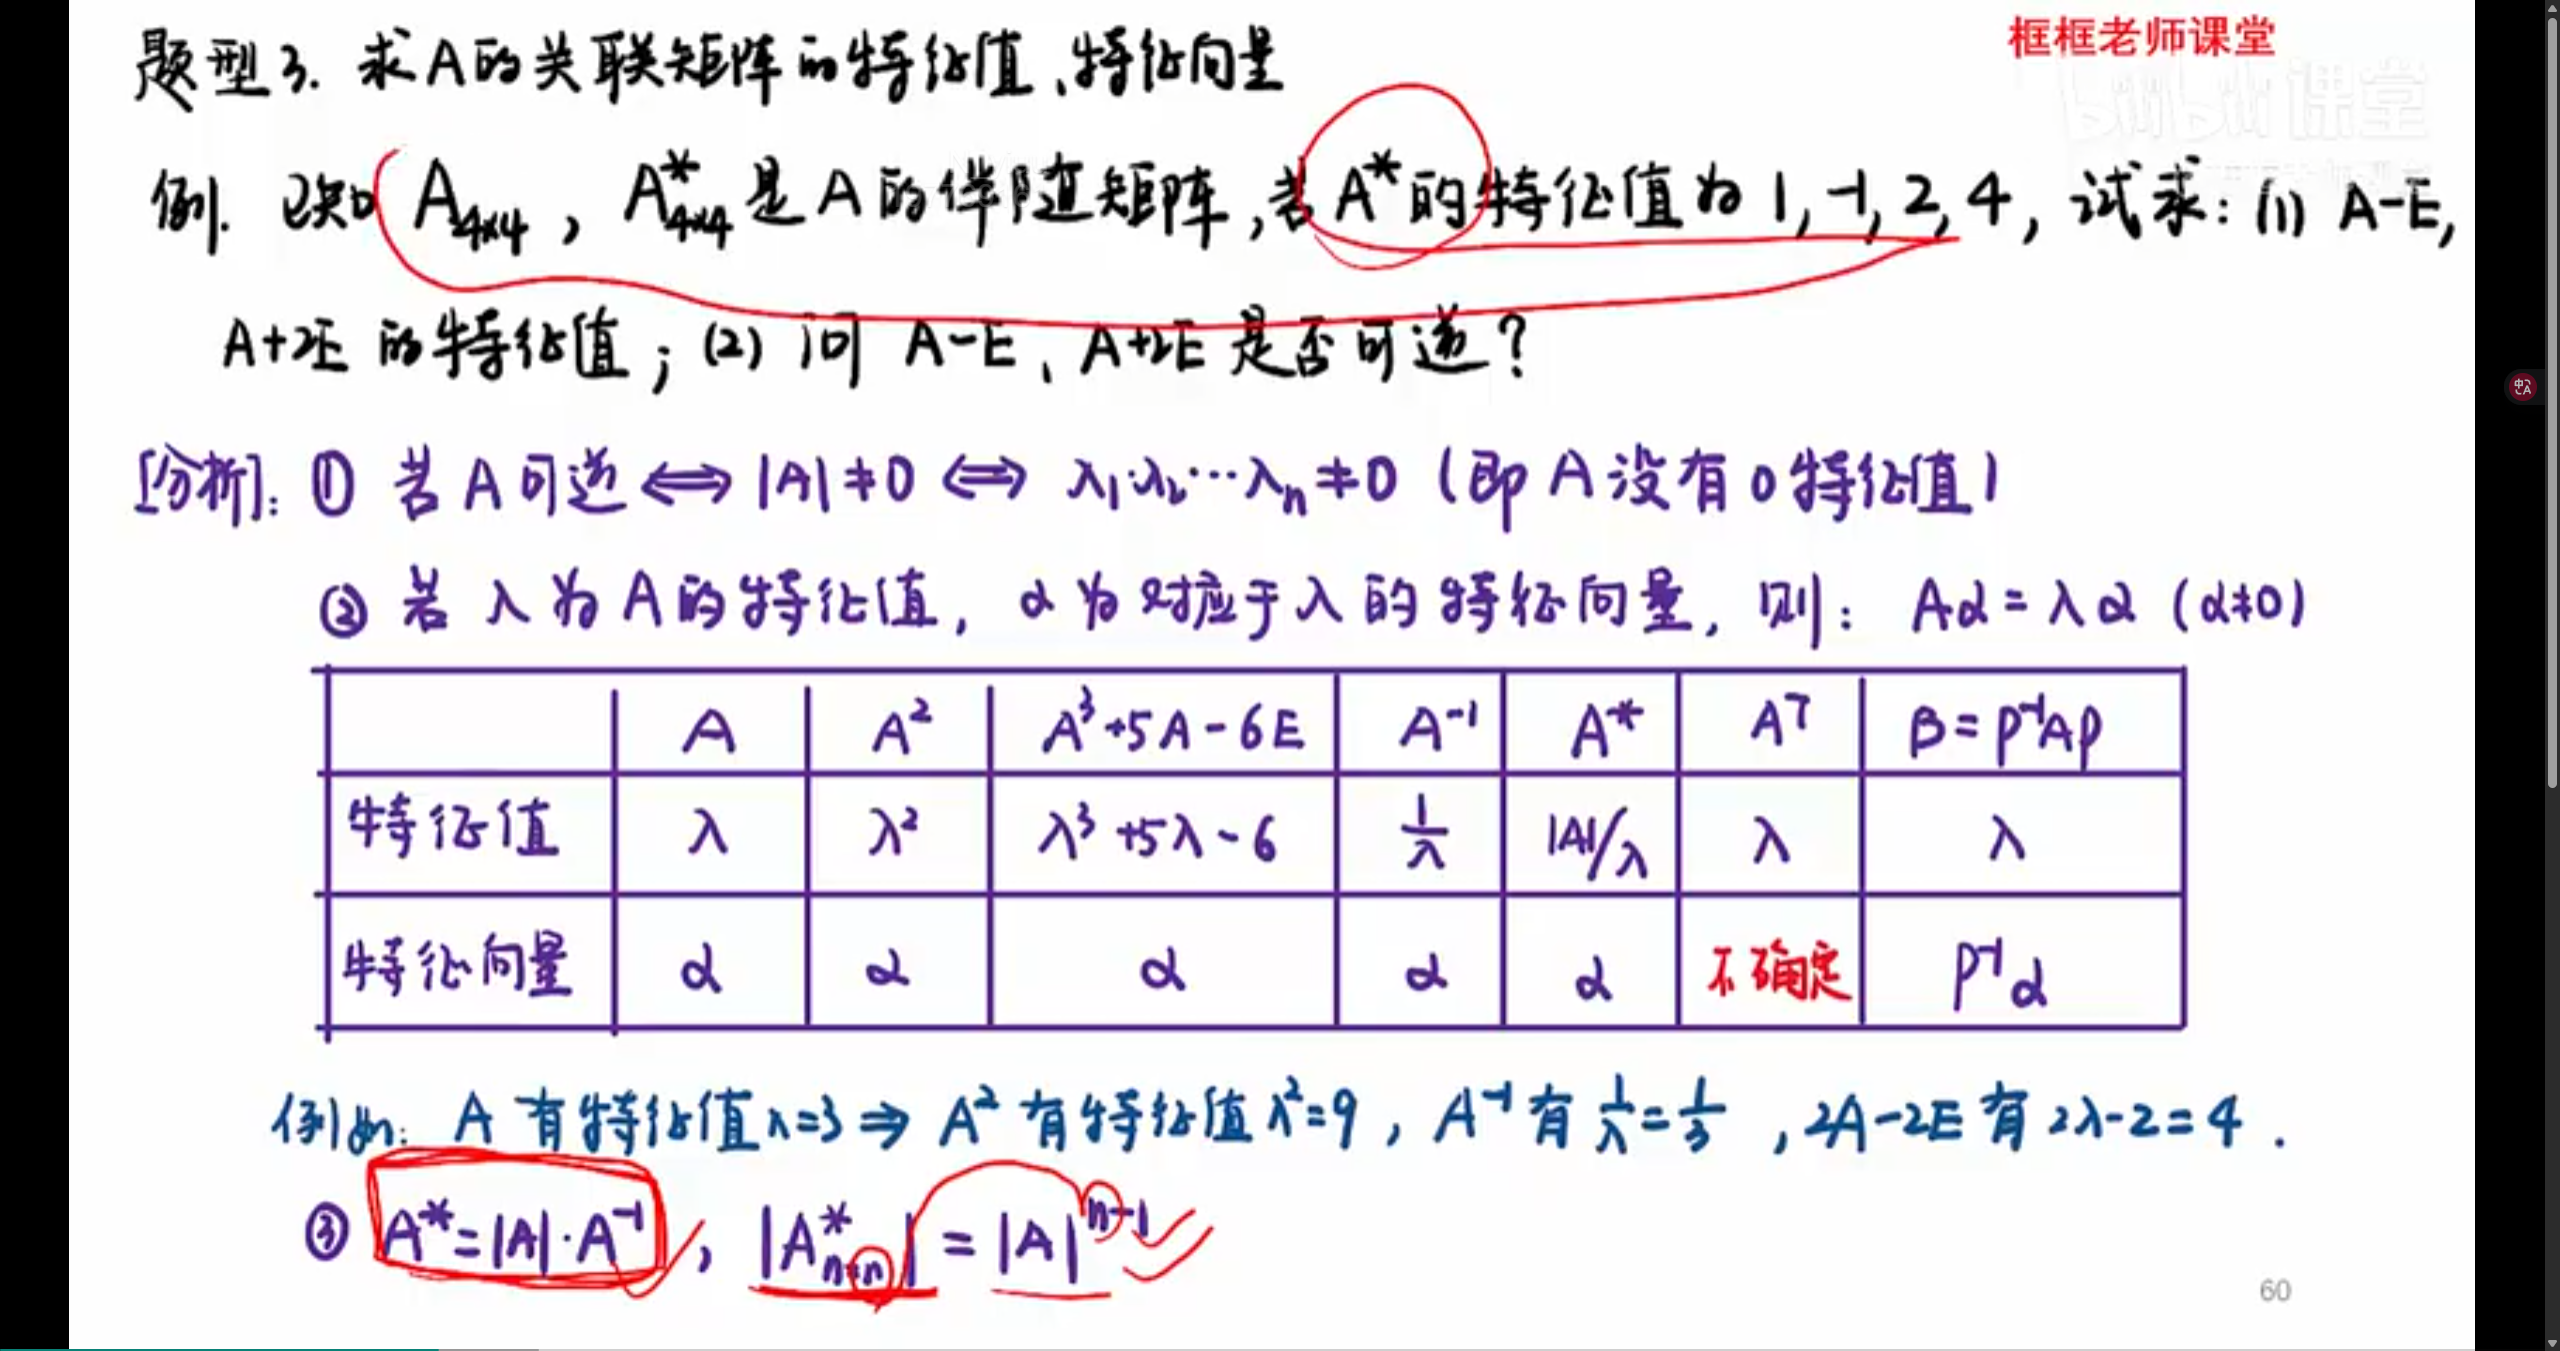 框框老师课堂
bilibili课堂
题型3. 求A的关联矩阵的特征值、特征向量
例. 已知 A₄ₓ₄, A*₄ₓ₄ 是A的伴随矩阵,若A*的特征值为1,-1,2,4, 试求: (1) A-E,
A+2E 的特征值; (2) 问 A-E、A+2E是否可逆?
[分析]: ① 若A可逆 ⇔ |A|≠0 ⇔ λ₁·λ₂…λₙ≠0 (即A没有0特征值)
② 若λ为A的特征值, α为对应于λ的特征向量, 则: Aα=λα (α≠0)
A A² A³+5A-6E A⁻¹ A* Aᵀ B=P⁻¹AP
特征值 λ λ² λ³+5λ-6 1/λ |A|/λ λ λ
特征向量 α α α α α 不确定 P⁻¹α
例如: A有特征值λ=3 ⇒ A²有特征值λ²=9, A⁻¹有1/λ=1/3, 2A-2E有2λ-2=4.
③ A*=|A|·A⁻¹, |A*ₙₓₙ| = |A|ⁿ⁻¹
60